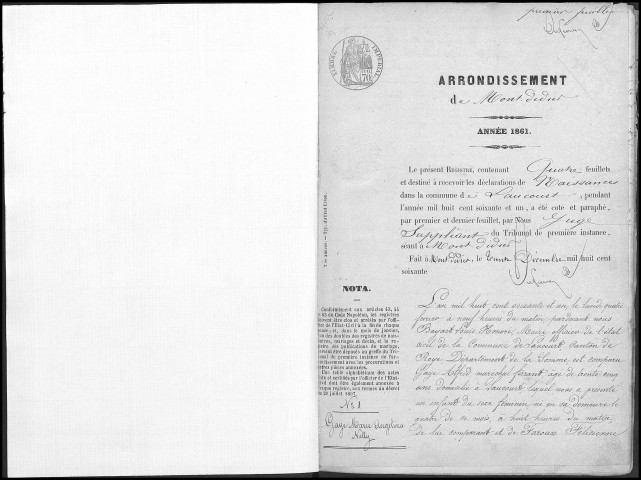 premier feuillet
TIMBRE IMPÉRIAL
ARRONDISSEMENT
de Mont didier
ANNÉE 1861.
Le présent REGISTRE, contenant Quatre feuillets
et destiné à recevoir les déclarations de Naissances
dans la commune de Laucourt, pendant
l'année mil huit cent soixante et un, a été coté et paraphé,
par premier et dernier feuillet, par Nous Juge
Suppléant du Tribunal de première instance,
séant à Mont didier
Fait à Mont didier, le Décembre mil huit cent
soixante
NOTA.
Conformément aux articles 43, 44
et 45 du Code Napoléon, les registres
doivent être clos et arrêtés par l'offi-
cier de l'État-Civil à la fin de chaque
année; et, dans le mois de janvier,
l'un des doubles des registres de nais-
sances, mariages et décès, et le re-
gistre des publications de mariage,
doivent être déposés au greffe du Tri-
bunal de première instance de l'ar-
rondissement avec les procurations et
autres pièces annexées.
Une table alphabétique des actes
faite et certifiée par l'officier de l'État-
Civil doit être également annexée à
chaque registre, aux termes du décret
du 20 juillet 1807.
N° 1
Gaye Marie Angelina
Nelly
L'an mil huit cent soixante et un, le lundi quatre
février à neuf heures du matin pardevant nous
Bayart Louis Honoré, Maire officier de l'état
civil de la Commune de Laucourt Canton de
Roye Département de la Somme, est comparu
Gaye Alfred maréchal ferant âgé de trente cinq
ans domicilié à Laucourt lequel nous a présenté
un enfant du sexe féminin, né en sa demeure le
quatre de ce mois, à huit heures du matin,
de lui comparant et de Faroux Félicienne